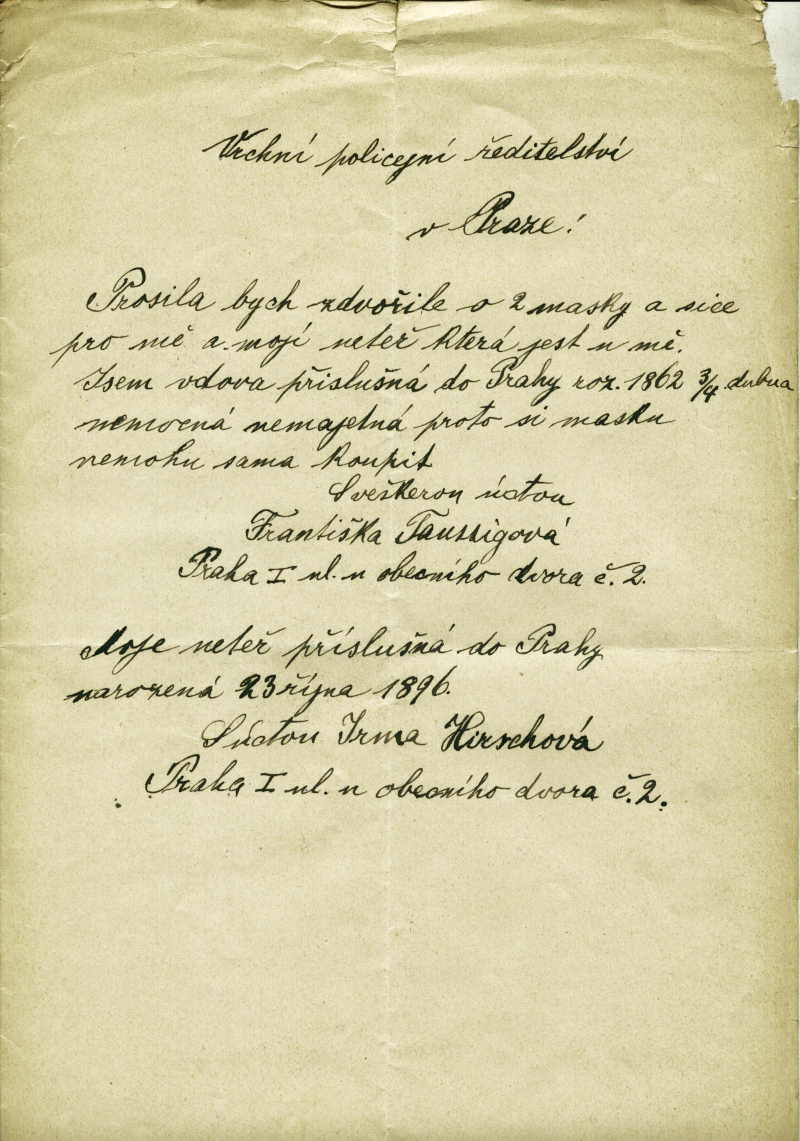 Vrchní policejní ředitelství
v Praze!
Prosila bych zdvořile o 2 masky a sice
pro mě a mojí neteř která jest u mě.
Jsem vdova příslušná do Prahy roz. 1862 3/4 dubna
nemocná nemajetná proto si masku
nemohu sama koupit
Sveškerou úctou
Františka Taussigová
Praha I ul. u obecního dvora č. 2.
Moje neteř příslušná do Prahy
narozená 23 října 1896.
Súctou Irma Hirschová
Praha I ul. u obecního dvora č. 2.